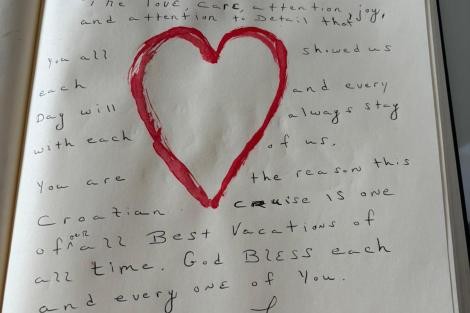 The love, care, attention, joy,
and attention to Detail that
you all showed us
each and every
Day will always stay
with each of us.
You are the reason this
Croatian cruise is one
of our all Best Vacations of
all time. God BLESS each
and every one of You.